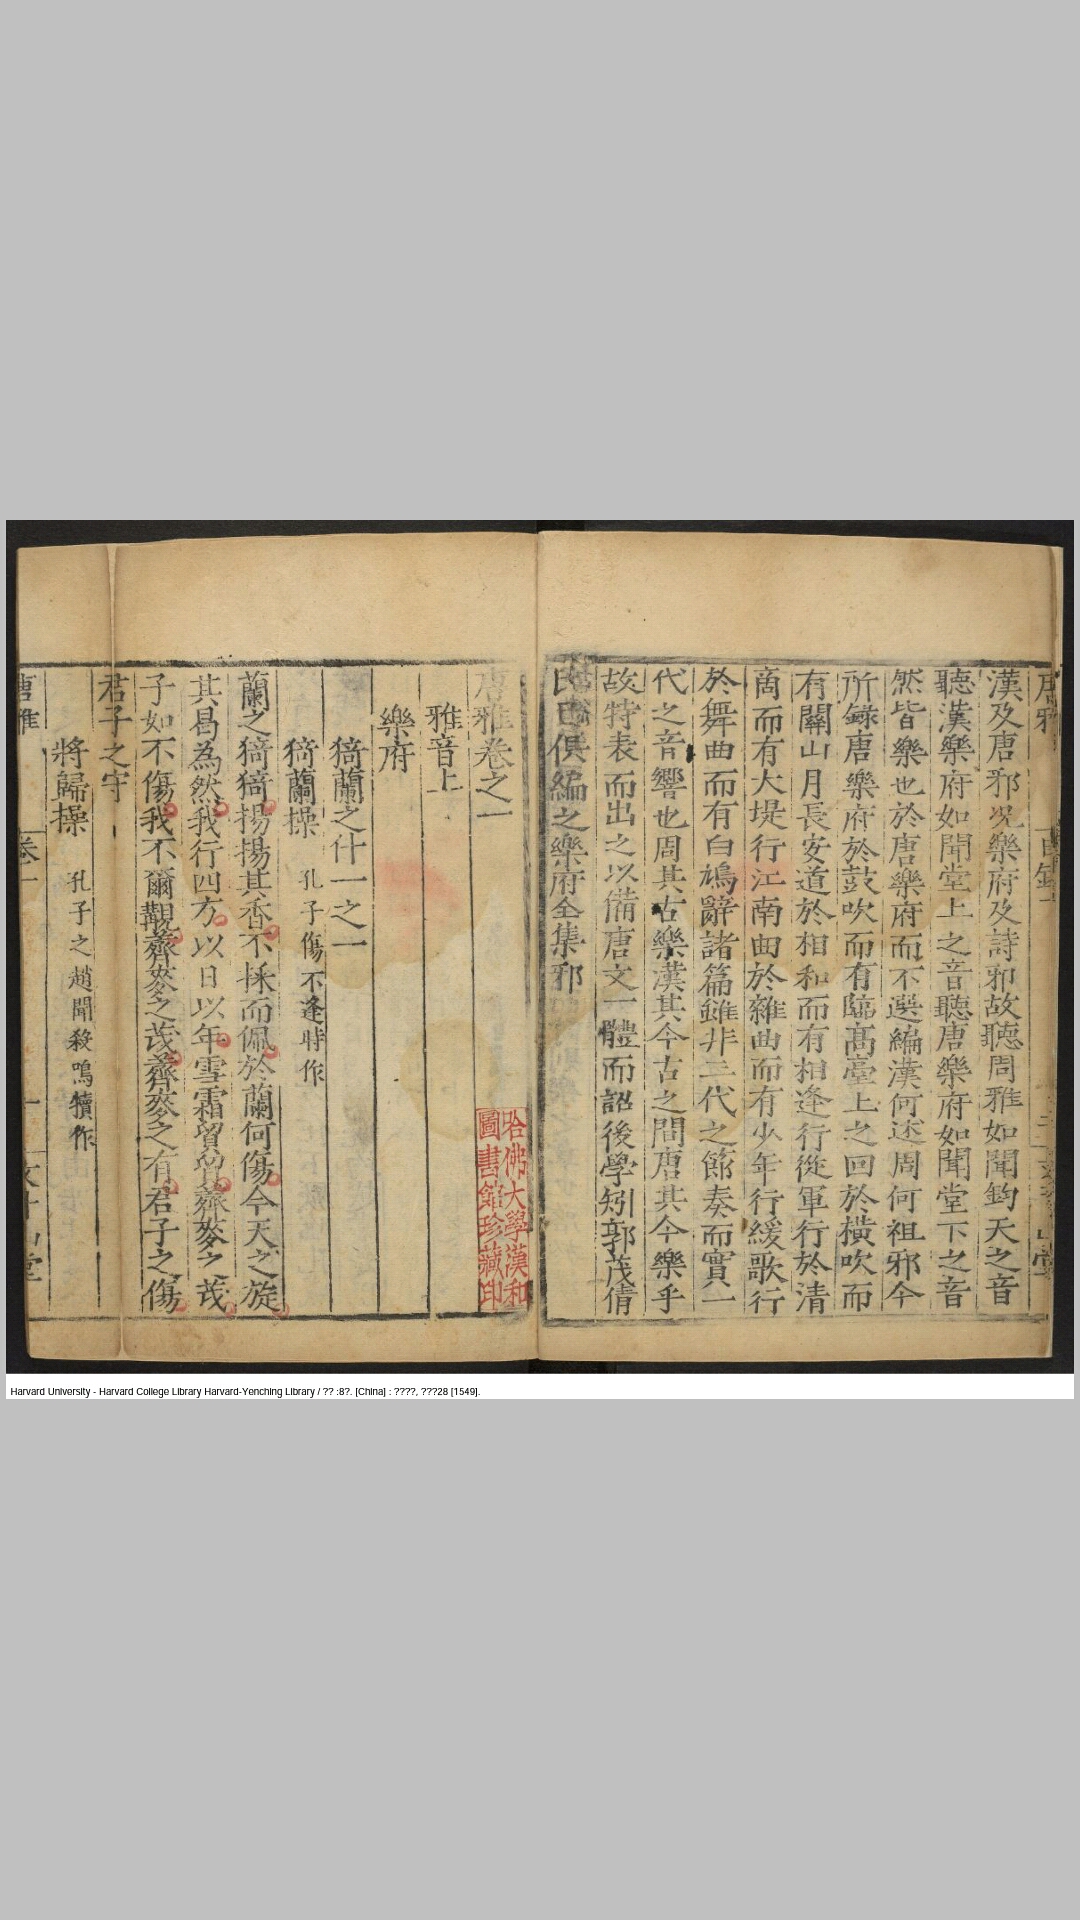 漢及唐邪况樂府及詩邪故聽周雅如聞鈞天之音
聽漢樂府如聞堂上之音聽唐樂府如聞堂下之音
然皆樂也於唐樂府而不選編漢何述周何祖邪今
所録唐樂府於鼓吹而有臨高臺上之回於横吹而
有關山月長安道於相和而有相逢行從軍行於清
商而有大堤行江南曲於雜曲而有少年行緩歌行
於舞曲而有白鳩辭諸篇雖非三代之節奏而實一
代之音響也周其古樂漢其今古之間唐其今樂乎
故特表而出之以備唐文一體而詔後學矧郭茂倩
氏已俱編之樂府全集邪
唐雅卷之一
雅音上
樂府
猗蘭之什一之一
猗蘭操 孔子傷不逢時作
蘭之猗猗揚揚其香不採而佩於蘭何傷今天之旋
其曷為然我行四方以日以年雪霜貿貿薺麥之茂
子如不傷我不爾覯薺麥之茂薺麥之有君子之傷
君子之守
將歸操 孔子之趙聞殺鳴犢作
唐雅 卷一
哈佛大學漢和
圖書館珍藏印
Harvard University - Harvard College Library Harvard-Yenching Library / ?? :8?. [China] : ????, ???28 [1549].